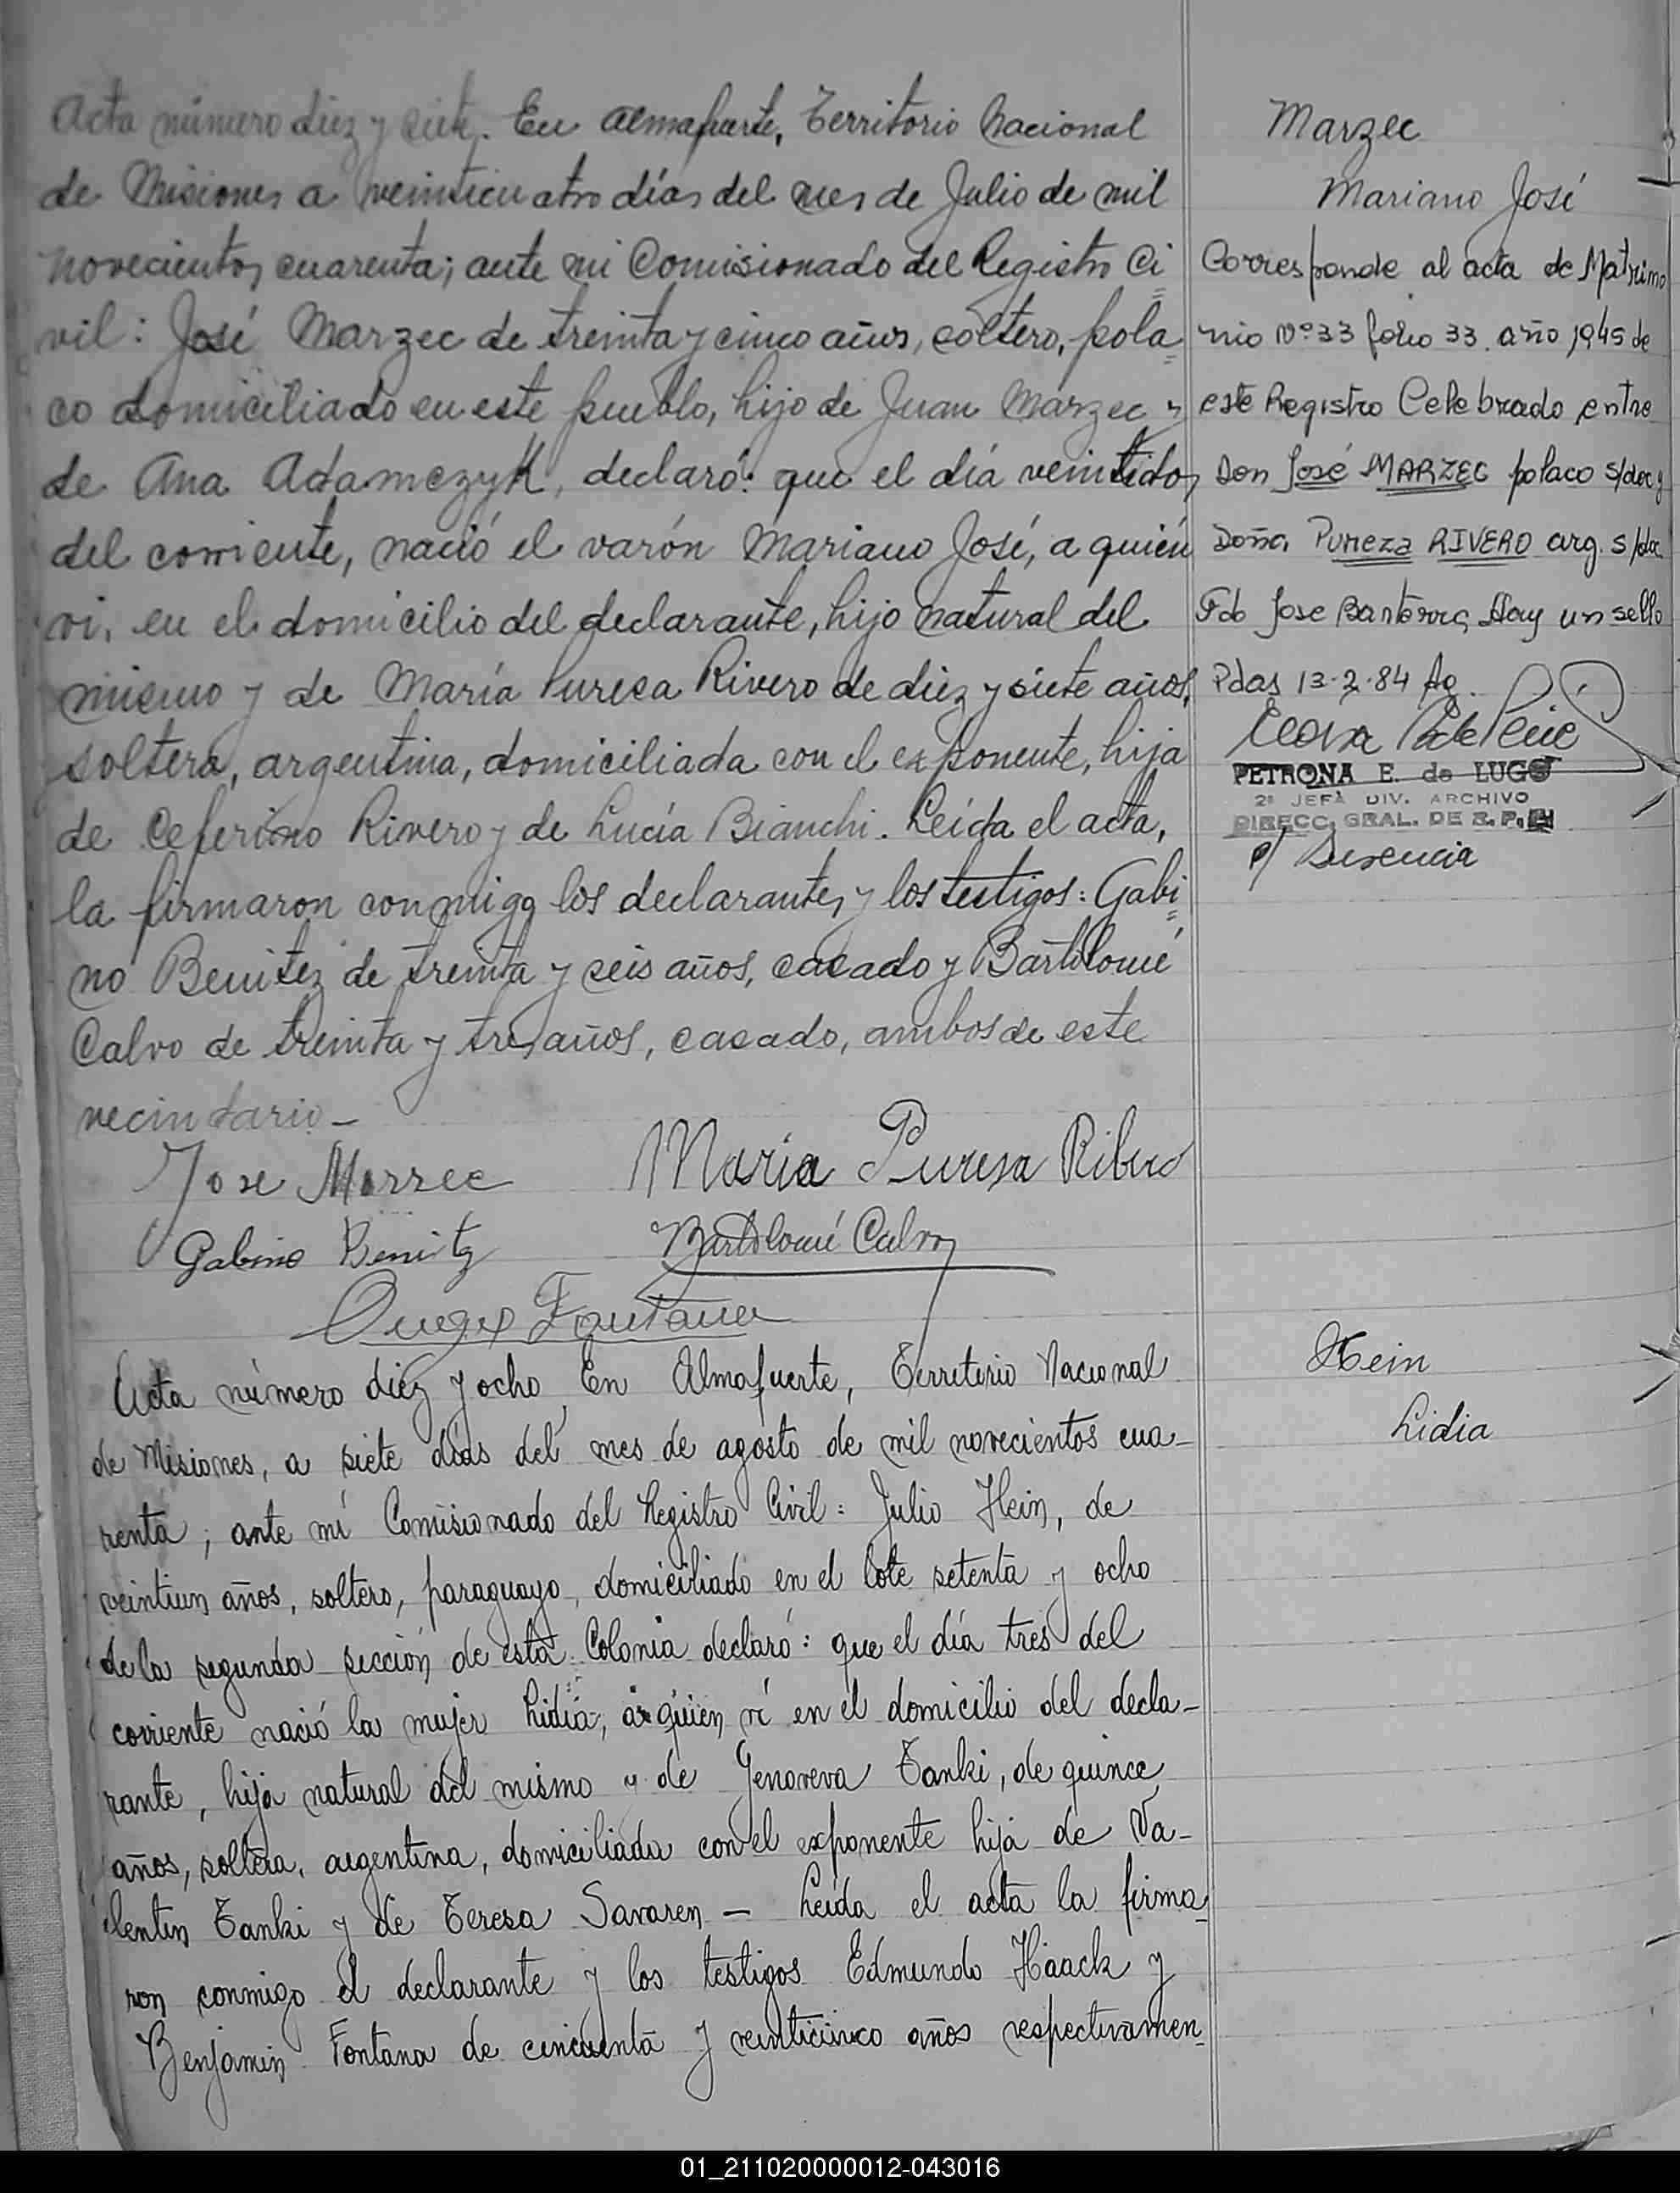 Acta número diez y siete. En Almafuerte, Territorio Nacional
de Misiones a veinticuatro días del mes de Julio de mil
novecientos cuarenta; ante mi Comisionado del Registro Ci
vil: José Marzec de treinta y cinco años, soltero, pola
co domiciliado en este pueblo, hijo de Juan Marzec y
de Ana Adamczyk, declaró: que el día veintidos
del corriente, nació el varón Mariano José, a quién
vi, en el domicilio del declarante, hijo natural del
mismo y de María Puresa Rivero de diez y siete años,
soltera, argentina, domiciliada con el exponente, hija
de Ceferino Rivero y de Lucía Bianchi. Leída el acta,
la firmaron conmigo los declarantes y los testigos: Gabi
no Benitez de treinta y seis años, casado y Bartolomé
Calvo de treinta y tres años, casado, ambos de este
vecindario_
Jose Marzec
María Puresa Ribero
Gabino Benitez
Bartolomé Calvo
Fontana
Marzec
Mariano José
Corresponde al acta de Matrimo
nio Nº 33 folio 33. año 1945 de
este Registro Celebrado entre
Don José MARZEC polaco s/doc y
Doña Pureza RIVERO arg. s/doc
Fdo Jose Hay un sello
Pdas 13-2-84
PETRONA E. de LUGO
2ª JEFA DIV. ARCHIVO
DIRECC. GRAL. DE R. P.
p/ Ausencia
Acta número diez y ocho En Almafuerte, Territorio Nacional
de Misiones, a siete días del mes de agosto de mil novecientos cua-
renta; ante mí Comisionado del Registro Civil: Julio Hein, de
veintiun años, soltero, paraguayo, domiciliado en el lote setenta y ocho
de la segunda sección de esta Colonia declaró: que el día tres del
corriente nació la mujer Lidia, a quien ví en el domicilio del decla-
rante, hija natural del mismo y de Genoveva Tanki, de quince
años, soltera, argentina, domiciliada con el exponente hija de Va-
lentin Tanki y de Teresa Savaren — Leída el acta la firma
ron conmigo el declarante y los testigos Edmundo Haack y
Benjamin Fontana de cincuenta y veinticinco años respectivamen-
Hein
Lidia
01_211020000012-043016